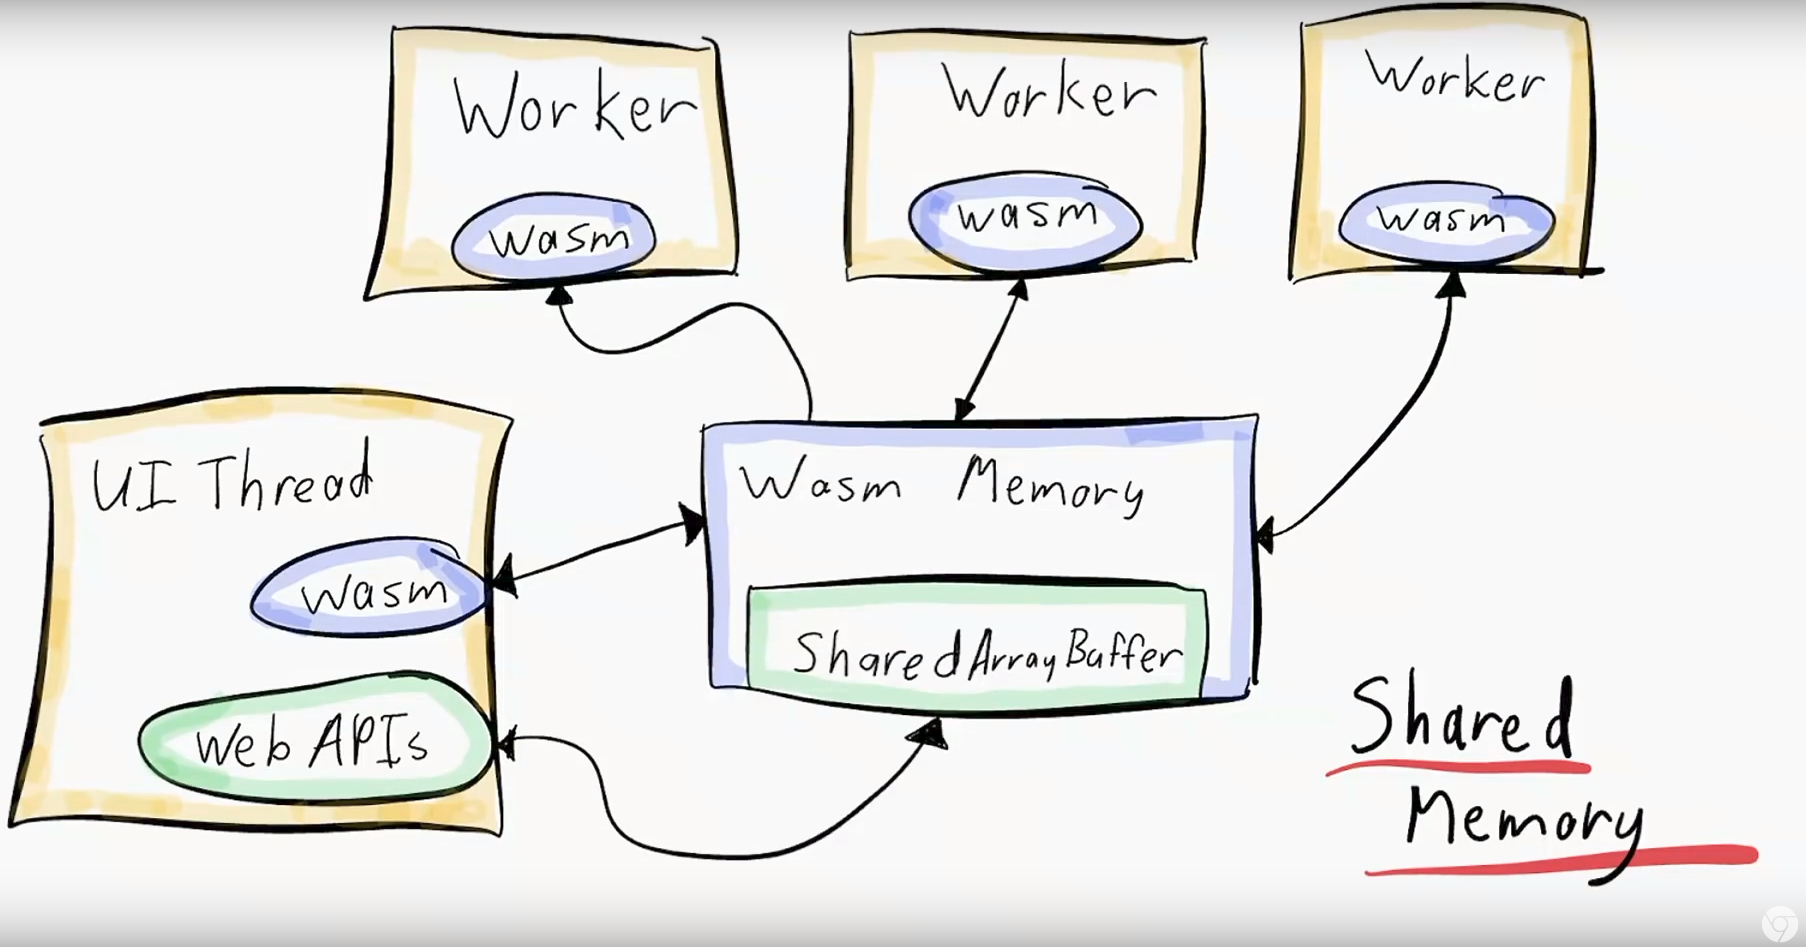 Worker
wasm
Worker
wasm
Worker
wasm
UI Thread
wasm
Web APIs
Wasm Memory
SharedArrayBuffer
Shared
Memory